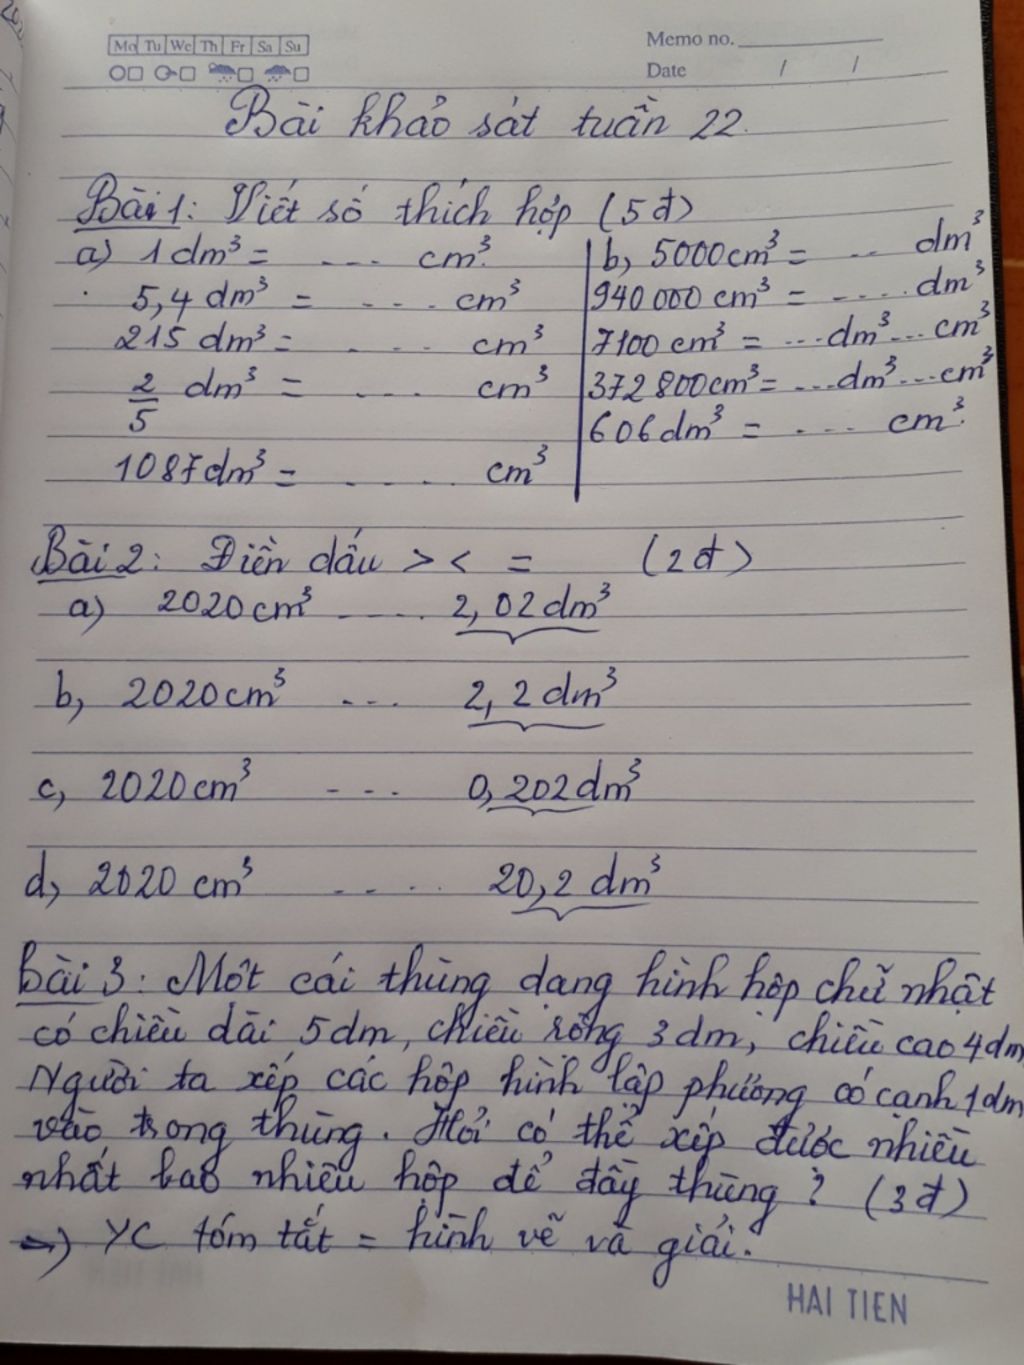 Mo Tu We Th Fr Sa Su
Memo no.
Date / /
Bài khảo sát tuần 22.
Bài 1: Viết số thích hợp (5đ)
a) 1 dm³ = .... cm³.
5,4 dm³ = .... cm³
215 dm³ = .... cm³
2/5 dm³ = .... cm³
1087dm³ = ..... cm³
b, 5000cm³ = ... dm³
940 000 cm³ = ..... dm³
7100 cm³ = ...dm³...cm³
372 800cm³ = ...dm³...cm³
606dm³ = .... cm³.
Bài 2: Điền dấu > < = (2đ)
a) 2020cm³ ..... 2,02dm³
b, 2020cm³ ... 2,2dm³
c, 2020cm³ ... 0,202dm³
d, 2020 cm³ .... 20,2 dm³
Bài 3: Một cái thùng dạng hình hộp chữ nhật
có chiều dài 5dm, chiều rộng 3dm, chiều cao 4dm
Người ta xếp các hộp hình lập phương có cạnh 1dm
vào trong thùng. Hỏi có thể xếp được nhiều
nhất bao nhiêu hộp để đầy thùng? (3đ)
→) YC tóm tắt = hình vẽ và giải.
HAI TIEN